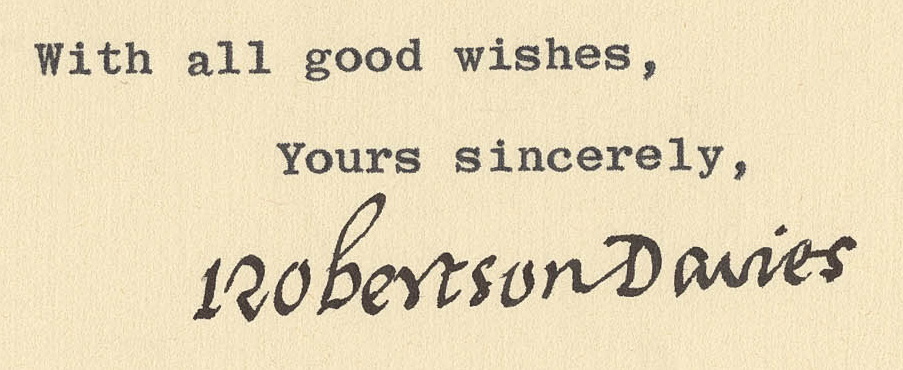 With all good wishes,
Yours sincerely,
Robertson Davies